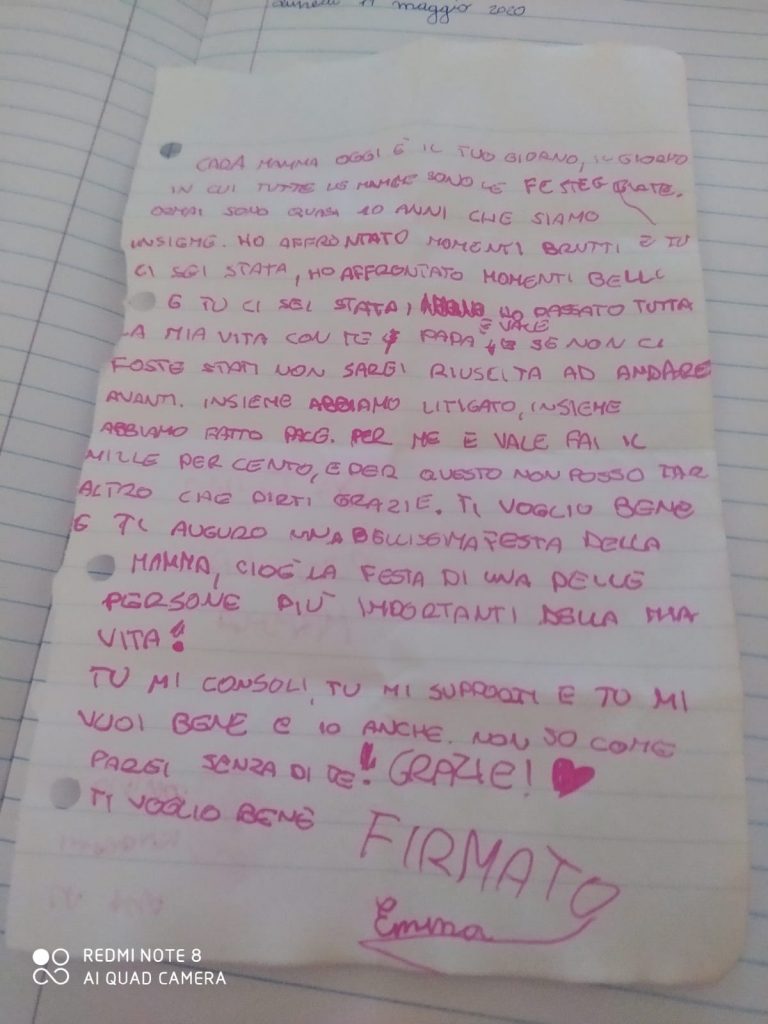 lunedì 11 maggio 2020
CARA MAMMA OGGI È IL TUO GIORNO, IL GIORNO
IN CUI TUTTE LE MAMME SONO LE FESTEGGIATE.
ORMAI SONO QUASI 10 ANNI CHE SIAMO
INSIEME. HO AFFRONTATO MOMENTI BRUTTI E TU
CI SEI STATA, HO AFFRONTATO MOMENTI BELLI
E TU CI SEI STATA, HO PASSATO TUTTA
LA MIA VITA CON TE PAPÀ E VALE E SE NON CI
FOSTE STATI NON SAREI RIUSCITA AD ANDARE
AVANTI. INSIEME ABBIAMO LITIGATO, INSIEME
ABBIAMO FATTO PACE. PER ME E VALE FAI IL
MILLE PER CENTO, E PER QUESTO NON POSSO FAR
ALTRO CHE DIRTI GRAZIE. TI VOGLIO BENE
E TI AUGURO UNA BELLISSIMA FESTA DELLA
MAMMA, CIOÈ LA FESTA DI UNA DELLE
PERSONE PIÙ IMPORTANTI DELLA MIA
VITA!
TU MI CONSOLI, TU MI SUPPORTI E TU MI
VUOI BENE E IO ANCHE. NON SO COME
FAREI SENZA DI TE! GRAZIE!
TI VOGLIO BENE
FIRMATO
Emma
REDMI NOTE 8
AI QUAD CAMERA